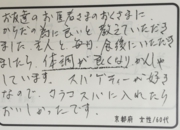 お友達のお医者さまのおくさまに
からだの為に良いと教えていただき
ました。主人と毎日、食後にいただき
ましたら、体調が良くなりかんしゃ
しています。スパゲティーが好き
なので、サラスパに入れたら
おいしかったです。
京都府 女性/60代